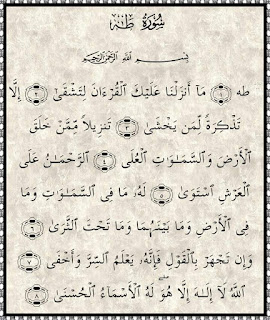 سُورَةُ طٰهٰ
بِسْمِ ٱللَّهِ ٱلرَّحْمَٰنِ ٱلرَّحِيمِ
طه ١ مَآ أَنزَلْنَا عَلَيْكَ ٱلْقُرْءَانَ لِتَشْقَىٰٓ ٢ إِلَّا
تَذْكِرَةً لِّمَن يَخْشَىٰ ٣ تَنزِيلًا مِّمَّنْ خَلَقَ
ٱلْأَرْضَ وَٱلسَّمَٰوَٰتِ ٱلْعُلَى ٤ ٱلرَّحْمَٰنُ عَلَى
ٱلْعَرْشِ ٱسْتَوَىٰ ٥ لَهُۥ مَا فِى ٱلسَّمَٰوَٰتِ وَمَا
فِى ٱلْأَرْضِ وَمَا بَيْنَهُمَا وَمَا تَحْتَ ٱلثَّرَىٰ ٦
وَإِن تَجْهَرْ بِٱلْقَوْلِ فَإِنَّهُۥ يَعْلَمُ ٱلسِّرَّ وَأَخْفَى ٧
ٱللَّهُ لَآ إِلَٰهَ إِلَّا هُوَ لَهُ ٱلْأَسْمَآءُ ٱلْحُسْنَىٰ ٨